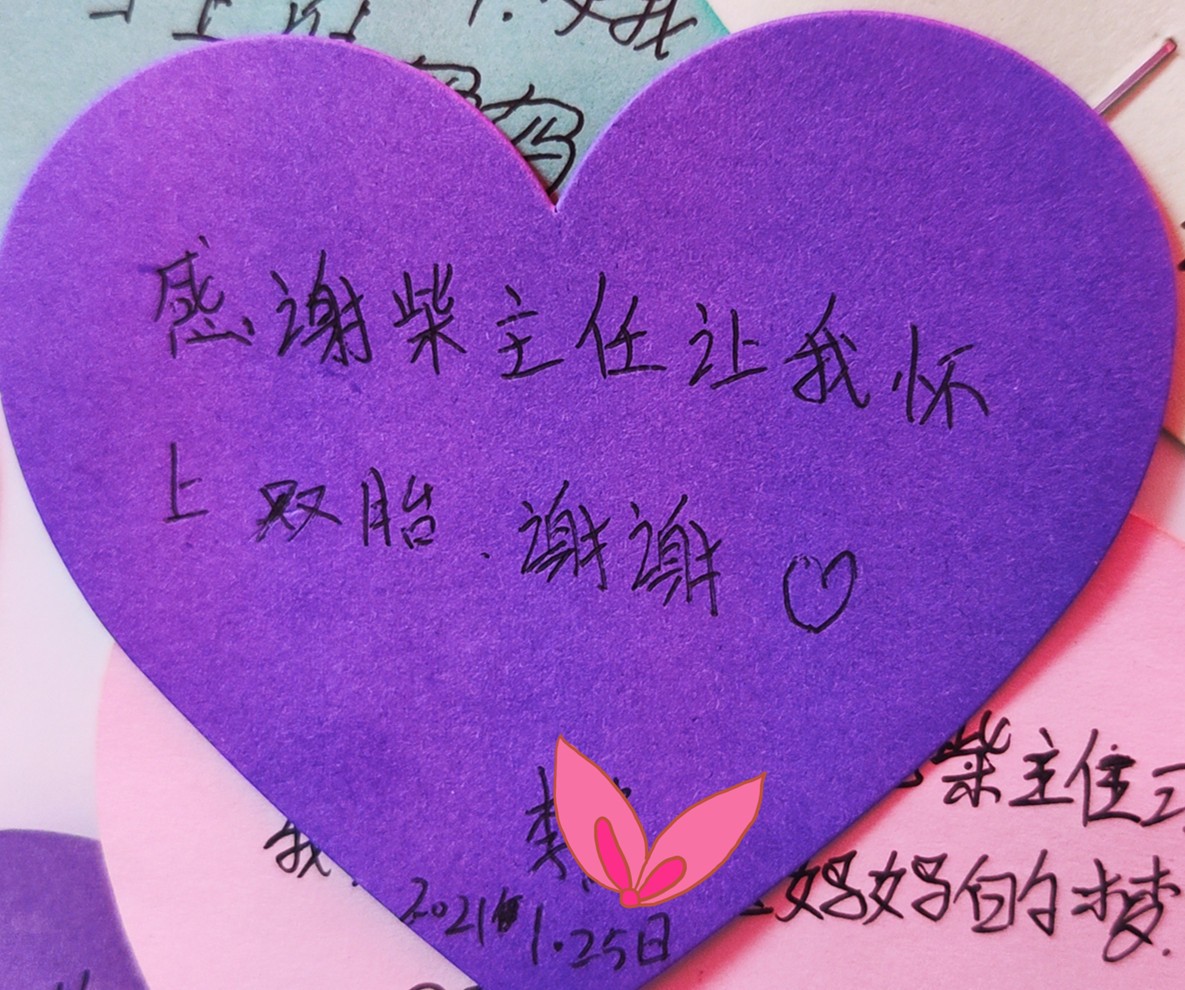 感谢柴主任让我怀
上双胎.谢谢
李
2021.1.25日
我.
柴主任
妈妈的梦.